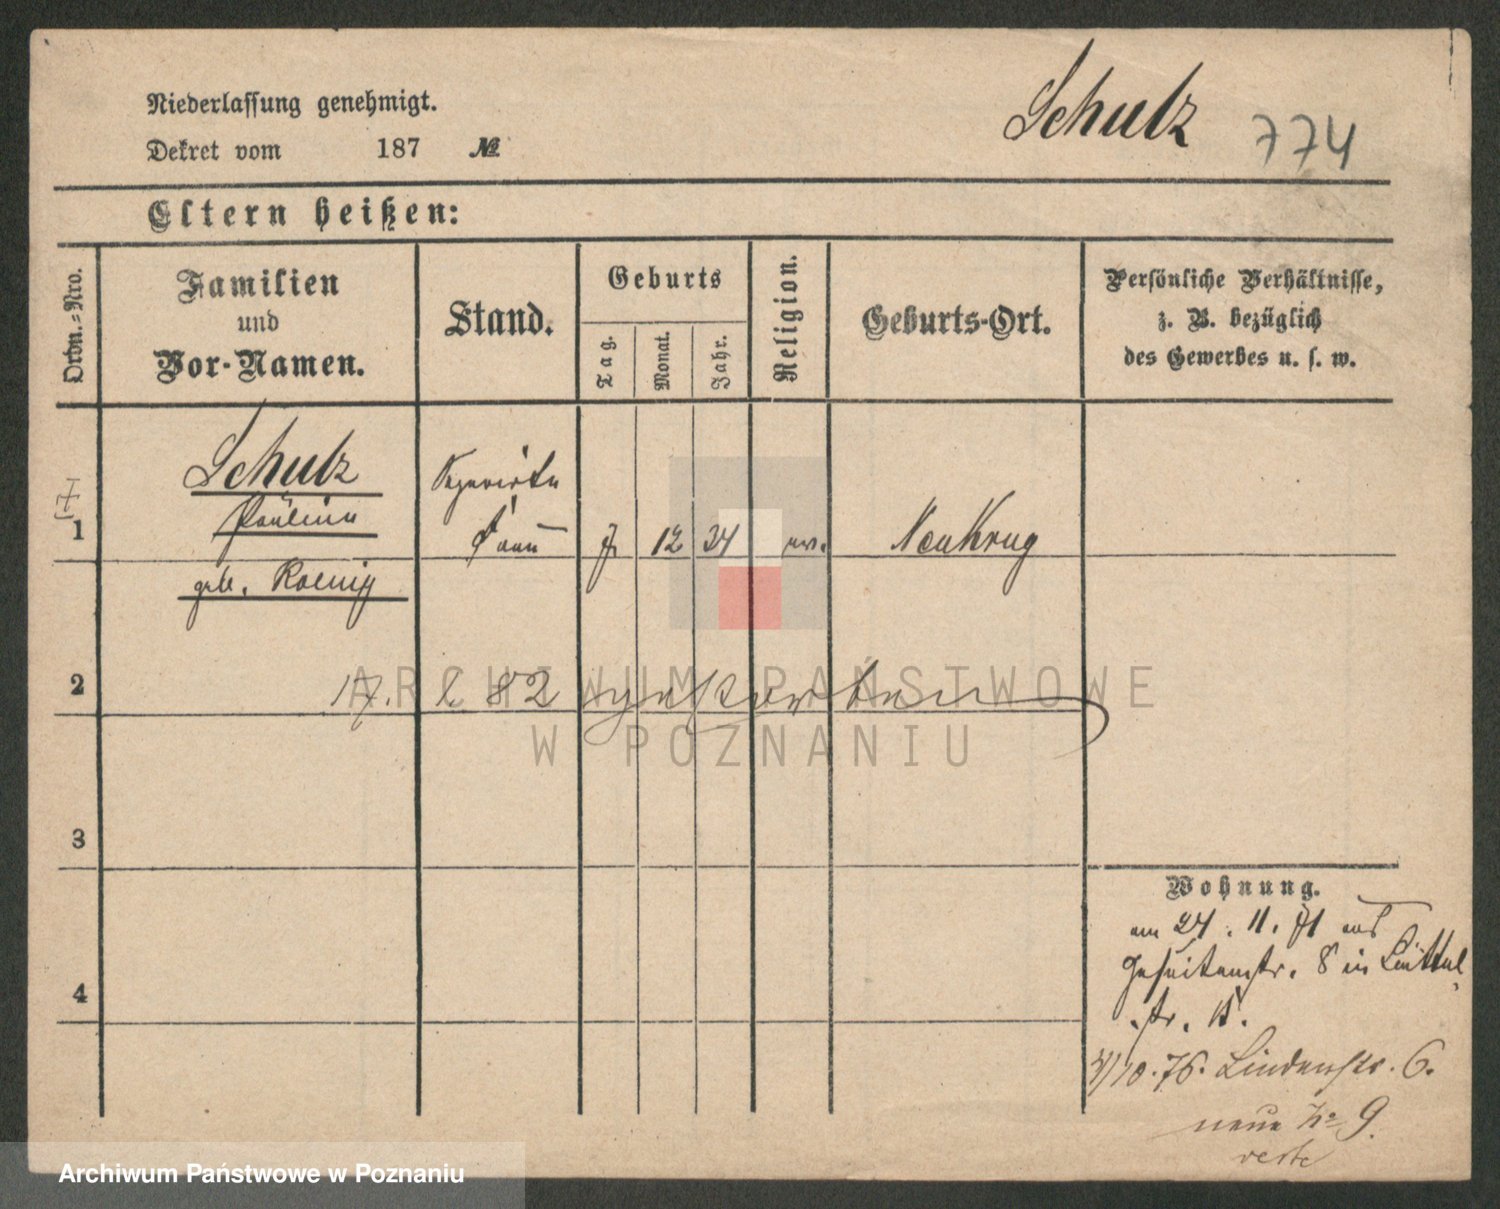 Niederlassung genehmigt.
Schulz 774
Dekret vom 187 №
Eltern heißen:
Ordn.-Nro.
Familien
und
Vor-Namen.
Stand.
Geburts
Tag.
Monat.
Jahr.
Religion.
Geburts-Ort.
Persönliche Verhältnisse,
z. B. bezüglich
des Gewerbes u. s. w.
1
Schulz
Pauline
geb. Koenig
separirte
Frau
7 12 34 ev. Neukrug
2
17. 2 82 verstorben
3
4
Wohnung.
am 24. 11. 71 aus
Jesuitenstr. 8 in Büttel
str. 15.
4/10.76. Lindenstr. 6.
neue No 9.
ARCHIWUM PAŃSTWOWE
W POZNANIU
Archiwum Państwowe w Poznaniu